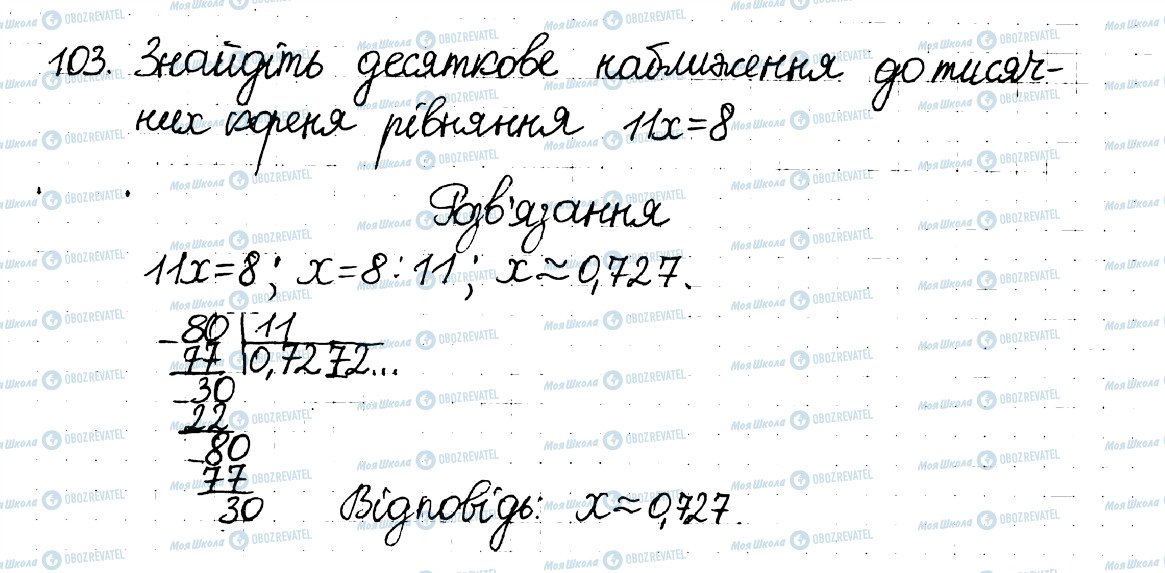 103. Знайдіть десяткове наближення до тисяч-
них кореня рівняння 11x=8
Розв'язання
11x=8; x=8:11; x≈0,727.
80 |11
77 |0,7272...
30
22
80
77
30
Відповідь: x≈0,727.
МояШкола OBOZREVATEL